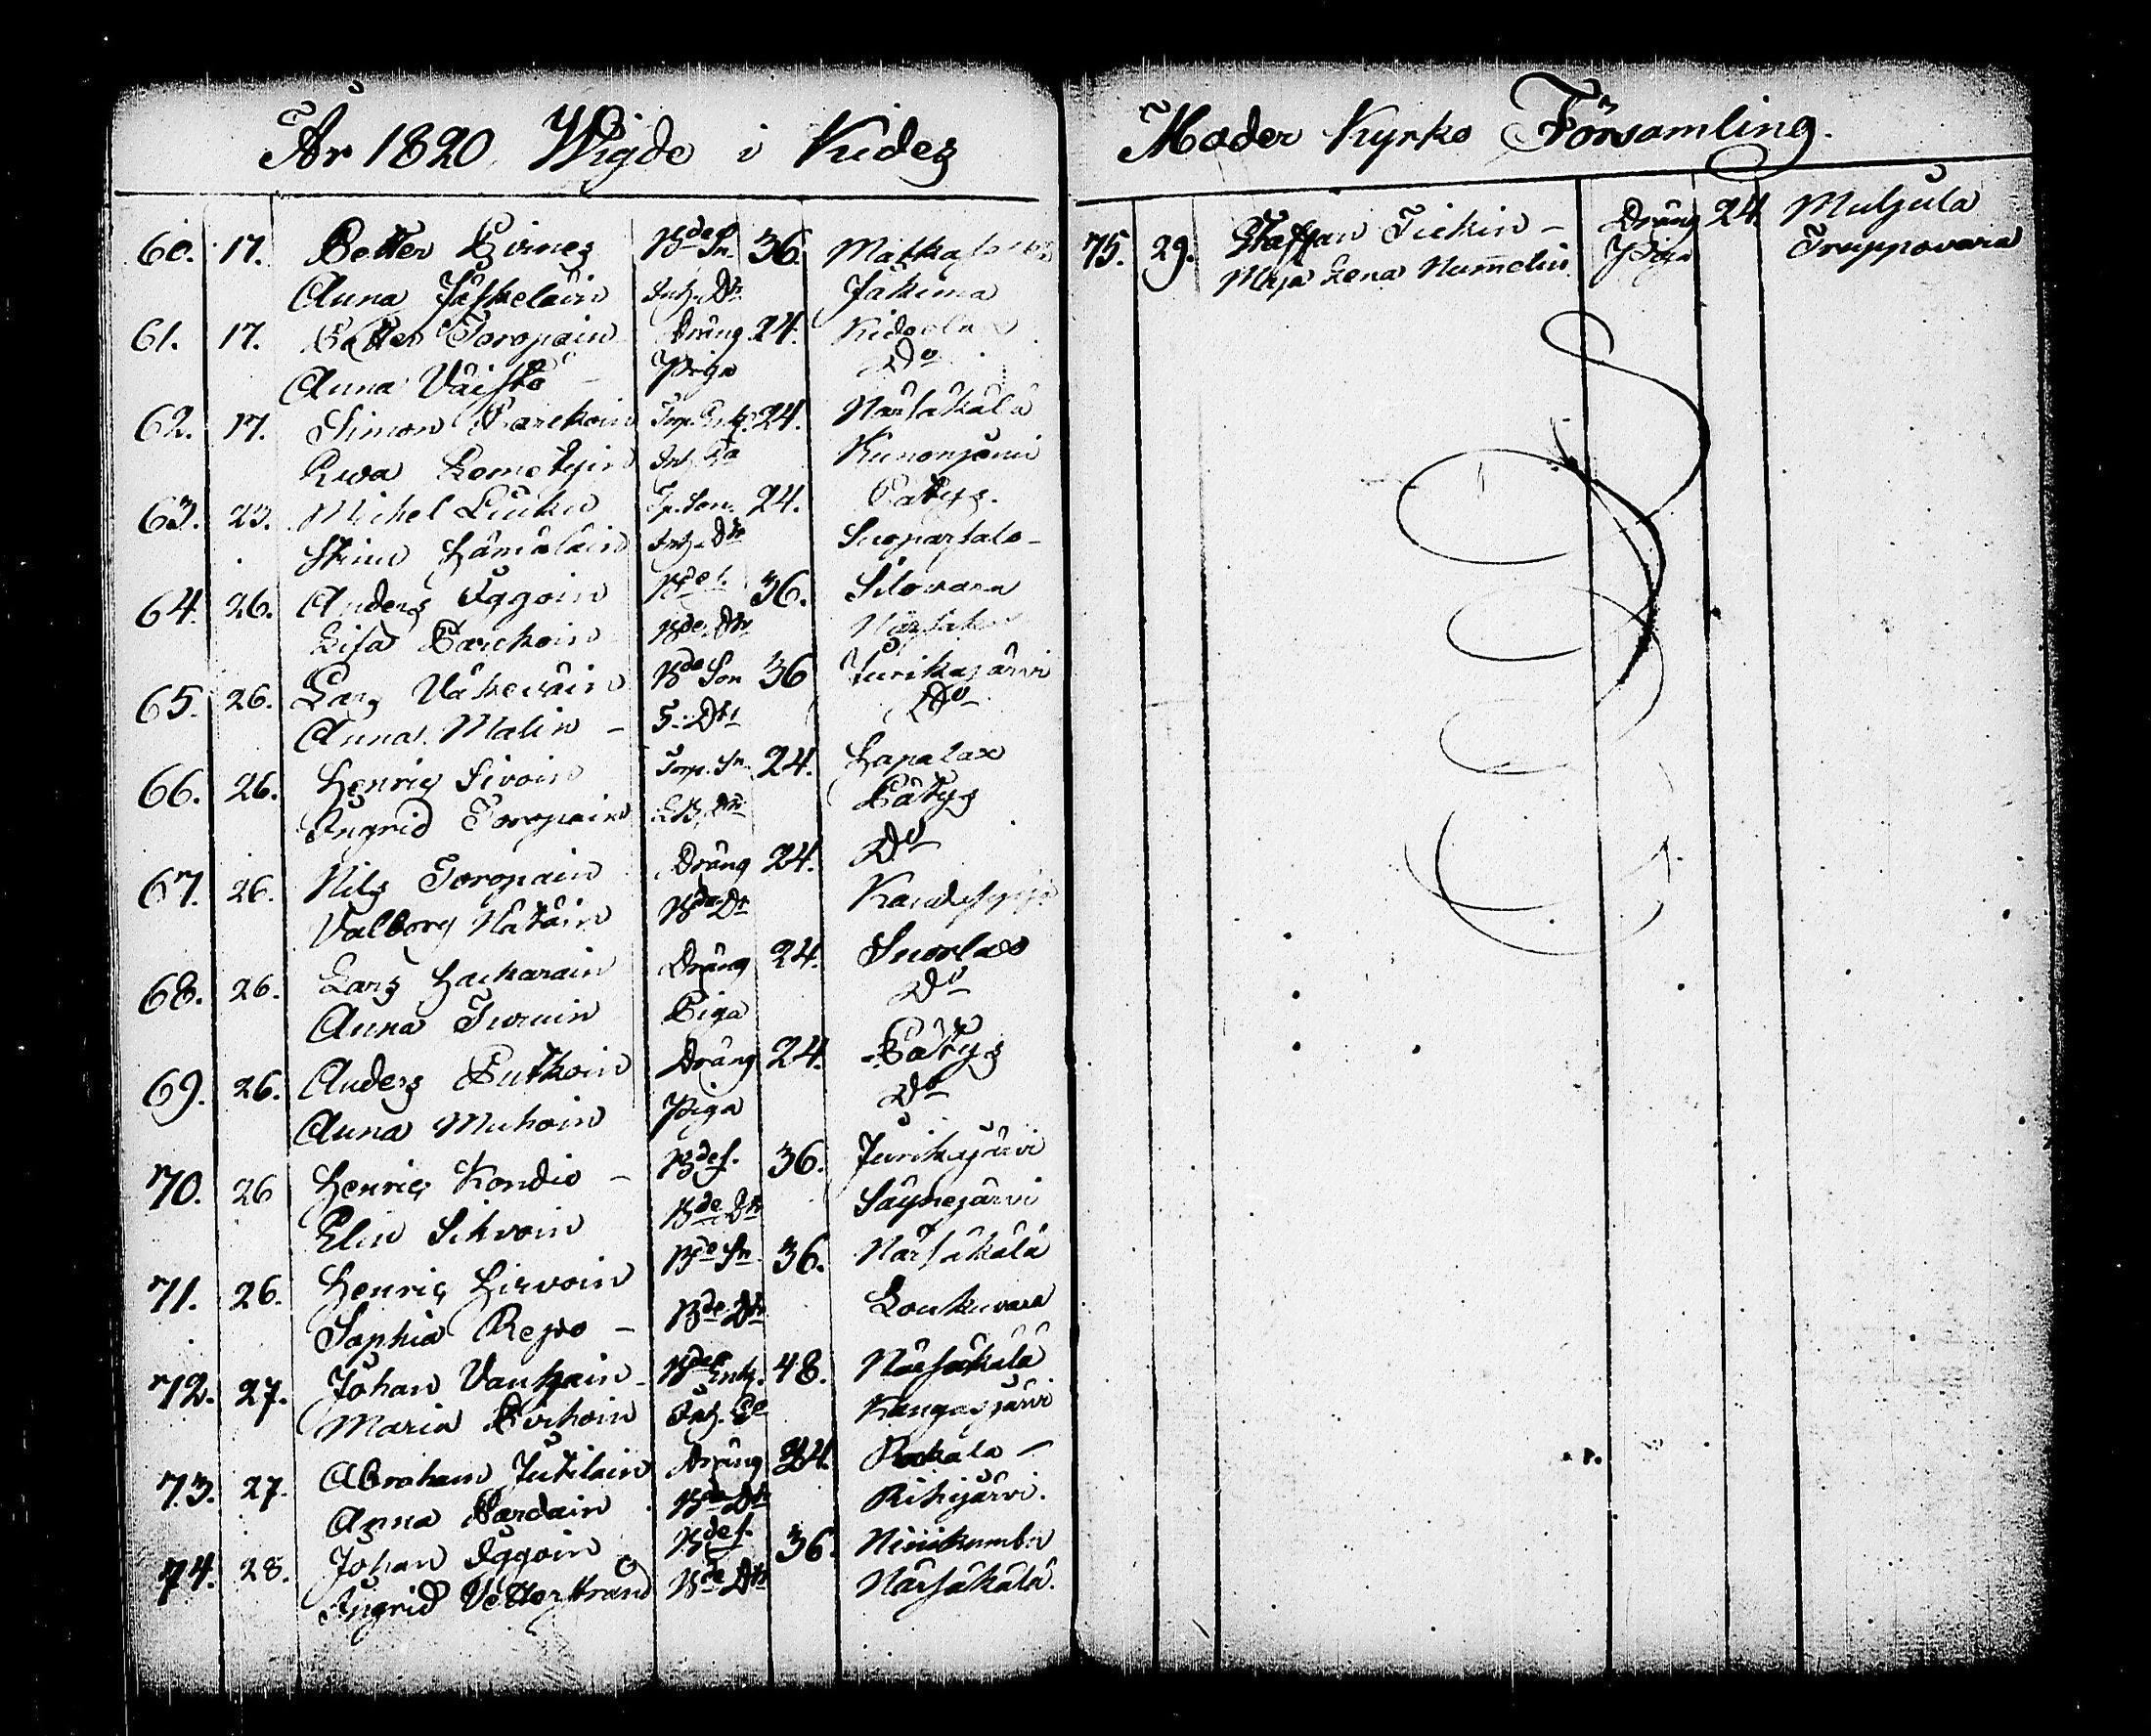 År 1820 Wigde i Kides Moder Kyrko Församling.
60. 17. Petter Hirnes Bde Sn. 36.
Anna Jäskeläin Inh. Dtr Jakima
61. 17. Petter Toropain Dräng 24. Kidoslax
Anna Väistö Piga Do
62. 17. Simon Parckoin 24. Närsäkälä
Ewa Kunonjemi
63. 23. Michel Liuku Tp. Son 24. Patzs.
Stina Hämäläin Inh. Dtr Suoparsalo
64. 26. Anders Äggoin Bde S. 36. Silovara
Lisa Parckoin Bde Dtr
65. 26. Lars Väkeväin Bde Son 36 Juurikajärvi
Anna Malin – S. Dtr Do
66. 26. Henric Sivoin Torp. Sn 24. Hapalax
Ingrid Toropain Dtr Pätys
67. 26. Nils Toropain Dräng 24. Do
Valborg Näväin Bde Dr
68. 26. Lars Hacharain Dräng 24. Suorlax
Anna Turuin Piga Do
69. 26. Anders Putkoin Dräng 24. Patys
Anna Muhoin Piga Do
70. 26 Henric Kondio – Bde S. 36. Juurikajärvi
Elin Sihvoin Bde Dtr Säynejärvi
71. 26. Henric Hirvoin Bde Sn 36. Närsäkälä
Sophia Repo – Bde Dtr Loukuvara
72. 27. Johan Vauhjain – Bde Enkl. 48. Närsäkälä
Maria Pirhoin Inh. Kangasjärvi
73. 27. Abraham Jutilain Dräng 24. Rokala –
Anna Pardain Bde Dtr Rihijärvi.
74. 28. Johan Äggoin Bde S. 36. Niinikumbu
Ingrid Vetterstrand Bde Dtr Närsäkälä.
75. 29. Staffan Tickin – Dräng 24. Muljula
Maja Lena Nummelin Piga Truppovara